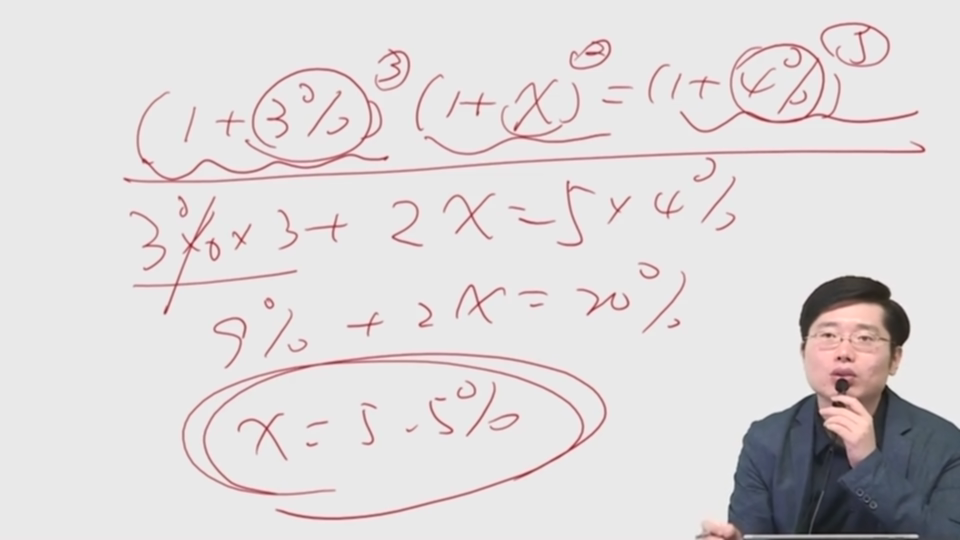 (1+3%)³ (1+x)² = (1+4%)⁵
3%×3+2x=5×4%
9%+2x=20%
x=5.5%